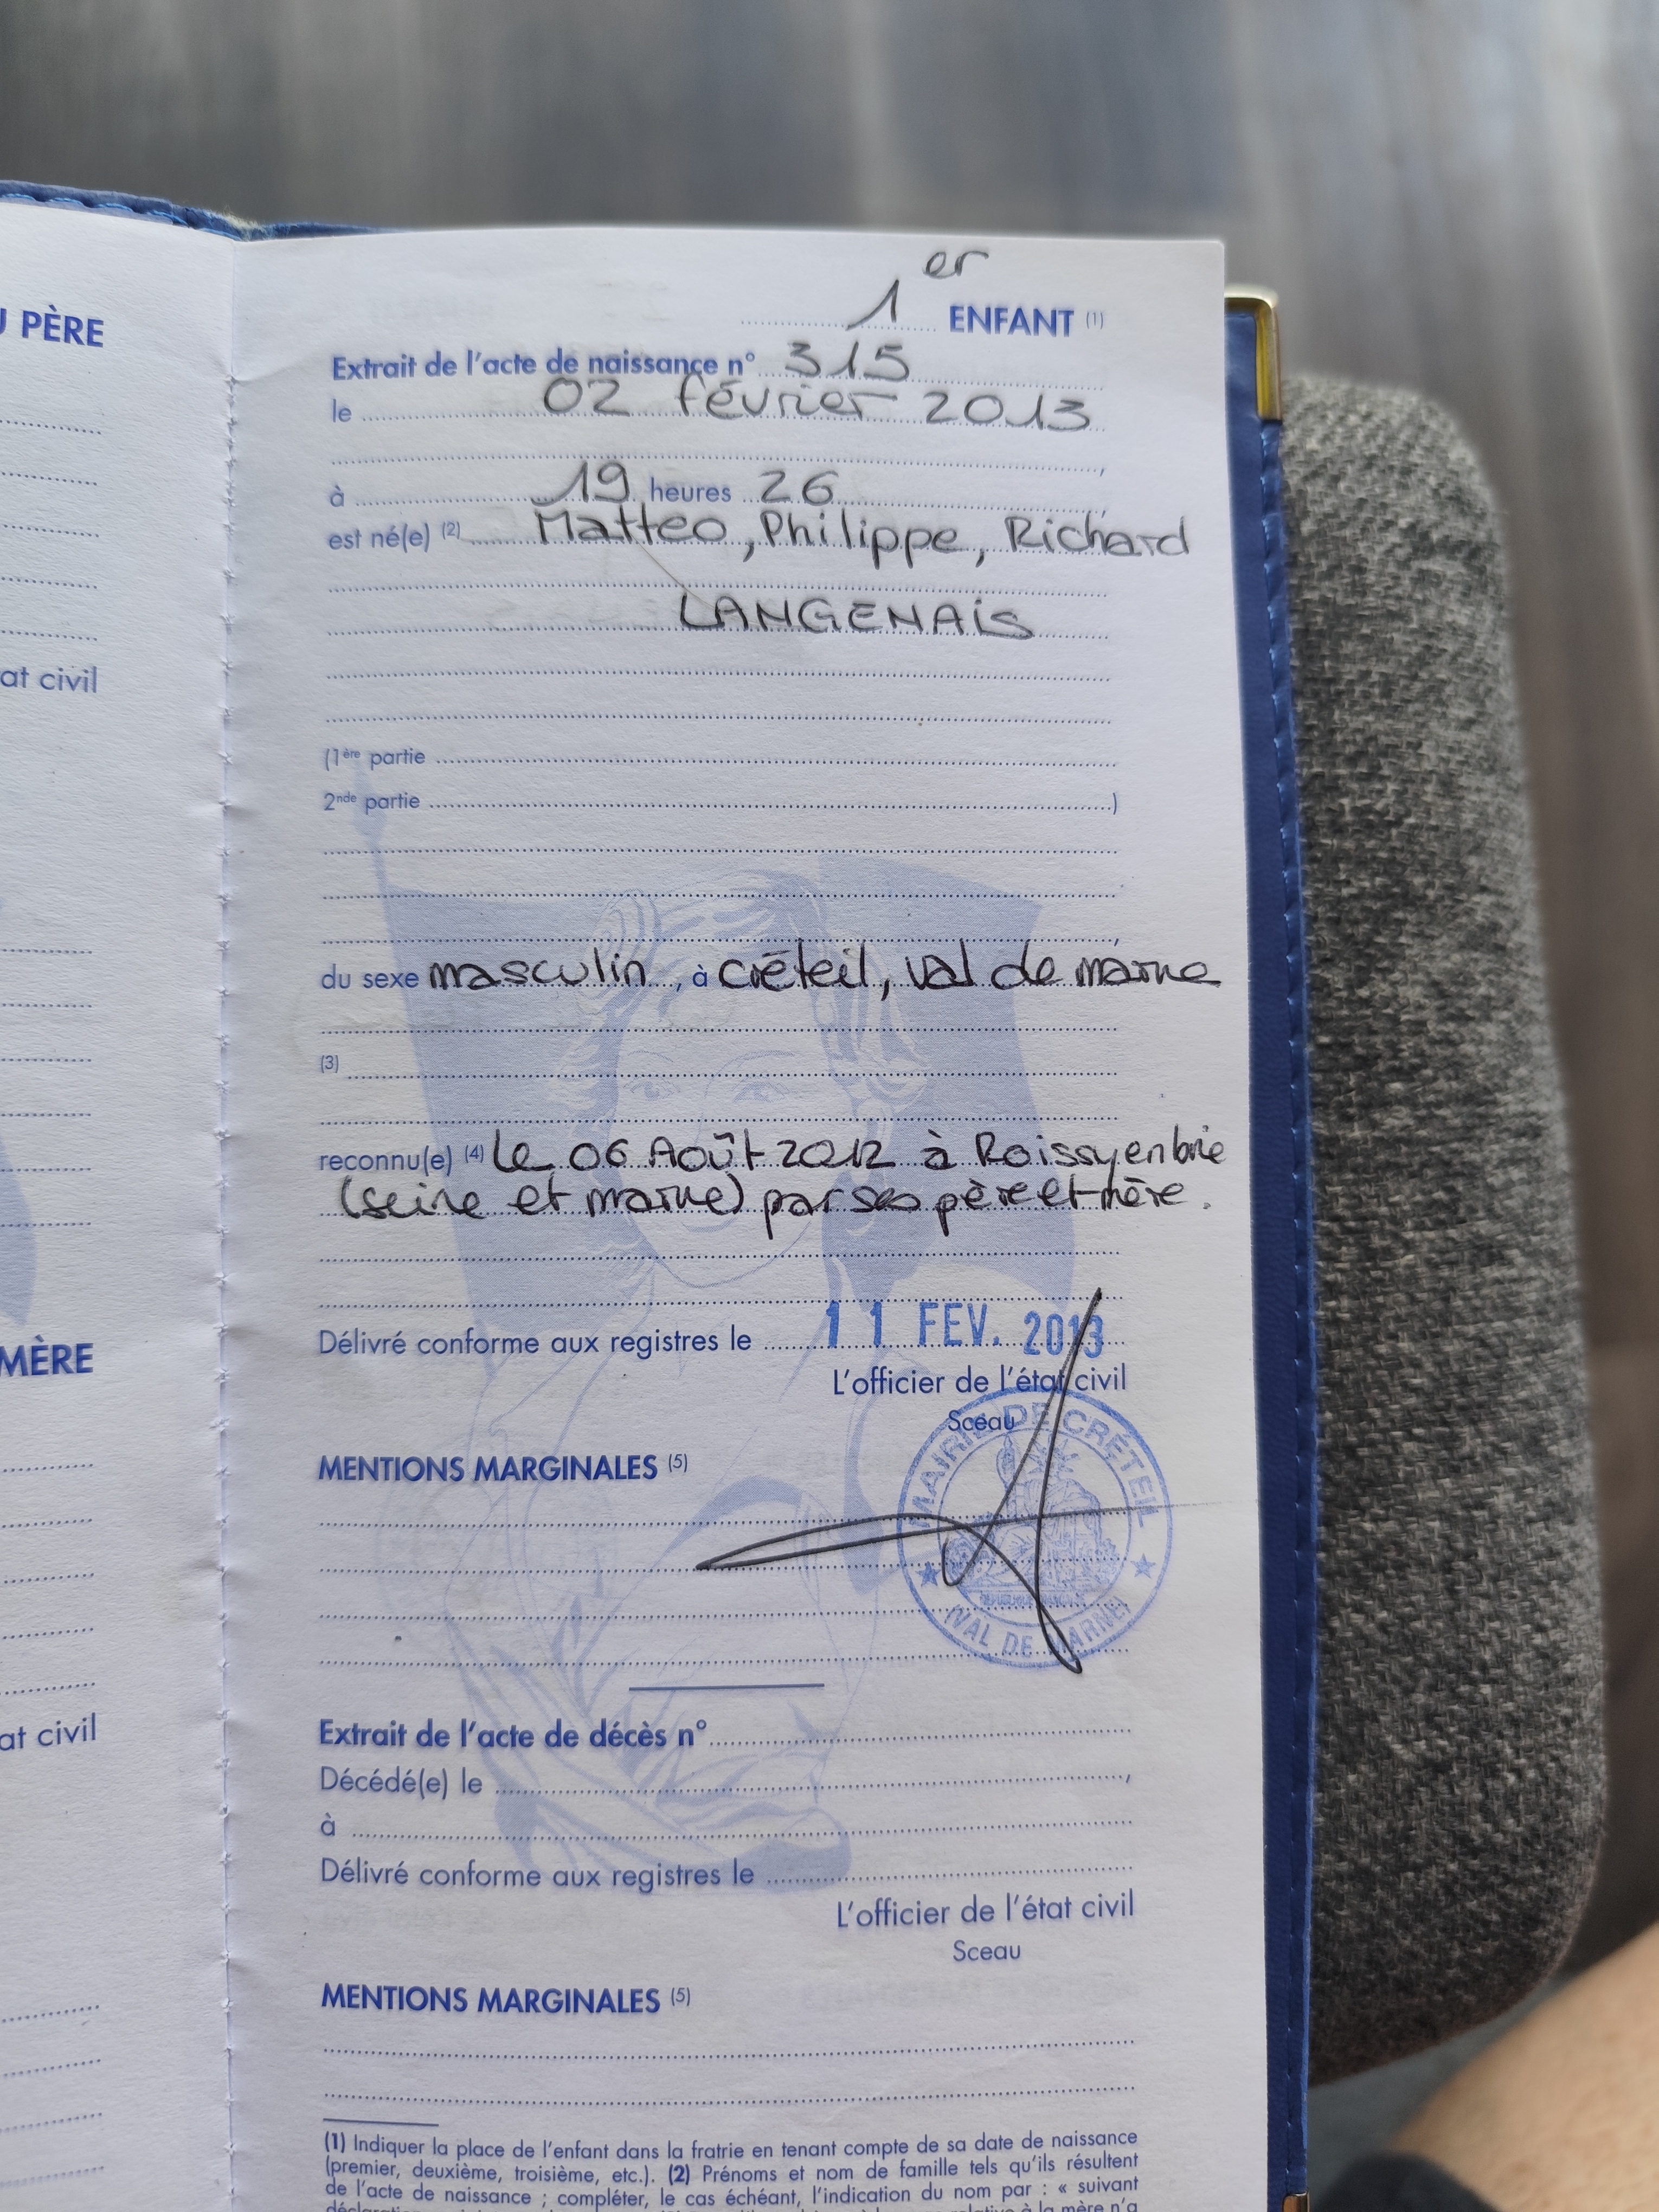 U PÈRE
at civil
MÈRE
at civil
1er ENFANT (1)
Extrait de l'acte de naissance n° 315
le 02 février 2013
,
à 19 heures 26 ,
est né(e) (2) Matteo, Philippe, Richard
LANGENAIS
(1ère partie
2nde partie )
,
du sexe masculin, à créteil, val de marne
(3)
reconnu(e) (4) le 06 Août 2012 à Roissy en brie
(seine et marne) par ses père et mère.
Délivré conforme aux registres le 11 FEV. 2013
L'officier de l'état civil
Sceau
MAIRIE DE CRÉTEIL
(VAL DE MARNE)
MENTIONS MARGINALES (5)
Extrait de l'acte de décès n°
Décédé(e) le ,
à
Délivré conforme aux registres le
L'officier de l'état civil
Sceau
MENTIONS MARGINALES (5)
(1) Indiquer la place de l'enfant dans la fratrie en tenant compte de sa date de naissance
(premier, deuxième, troisième, etc.). (2) Prénoms et nom de famille tels qu'ils résultent
de l'acte de naissance ; compléter, le cas échéant, l'indication du nom par : « suivant